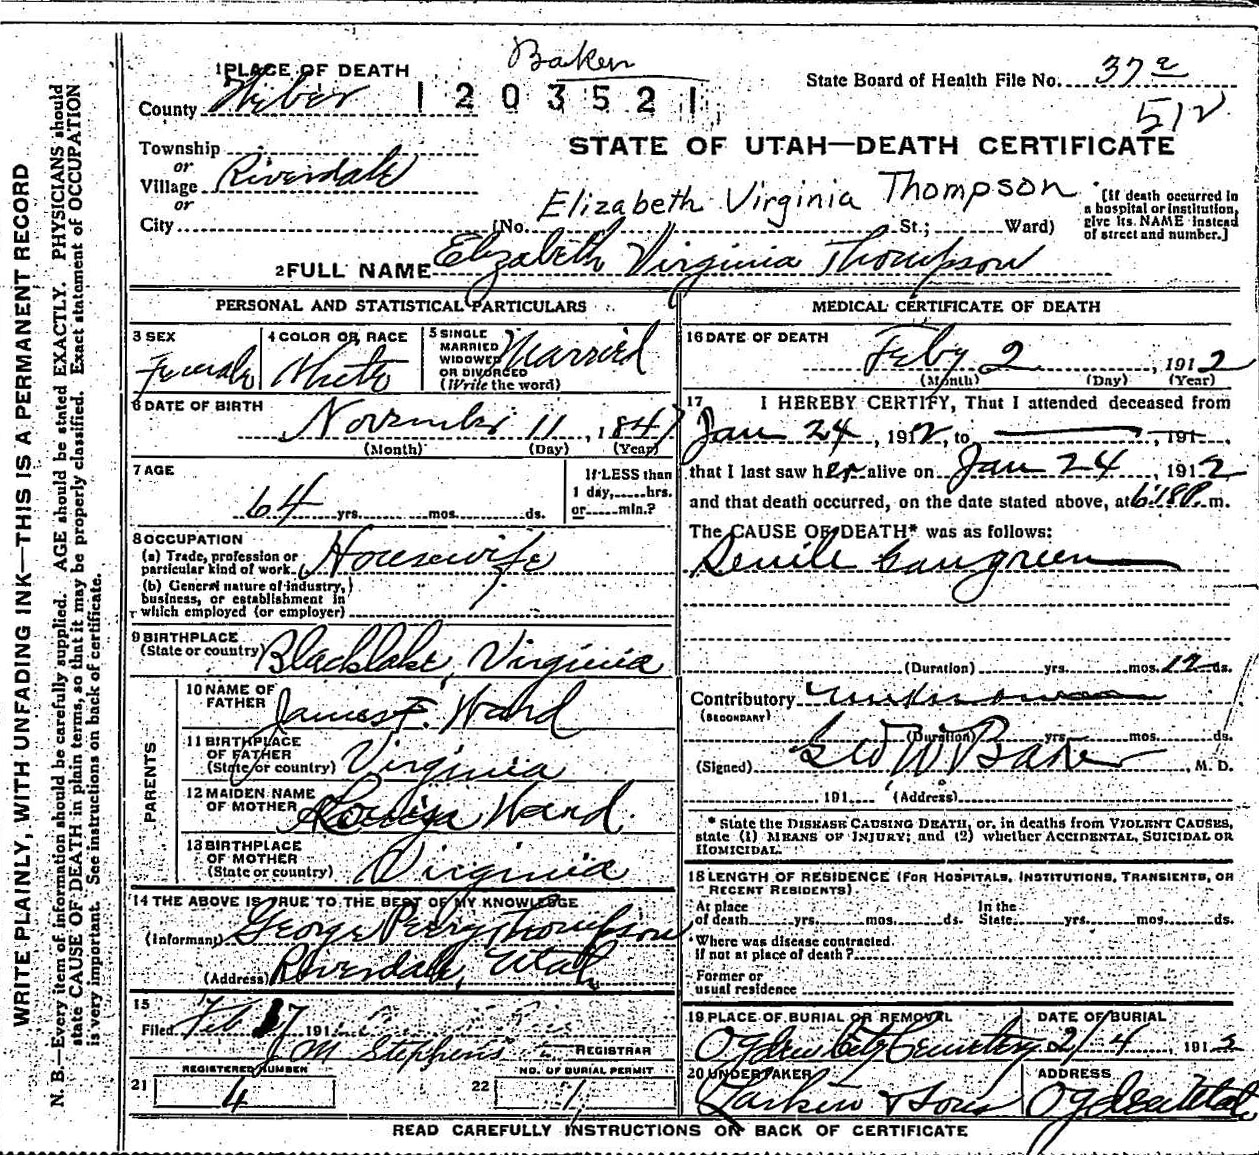 WRITE PLAINLY, WITH UNFADING INK—THIS IS A PERMANENT RECORD
N. B.—Every item of information should be carefully supplied. AGE should be stated EXACTLY. PHYSICIANS should
state CAUSE OF DEATH in plain terms, so that it may be properly classified. Exact statement of OCCUPATION
is very important. See instructions on back of certificate.
Baker
1 PLACE OF DEATH
State Board of Health File No. 37a
County Weber 1203521
512
STATE OF UTAH—DEATH CERTIFICATE
Township
or
Village Riverdale
or
City (No. St.; Ward)
Elizabeth Virginia Thompson
[If death occurred in
a hospital or institution,
give its NAME instead
of street and number.]
2 FULL NAME Elizabeth Virginia Thompson
PERSONAL AND STATISTICAL PARTICULARS
3 SEX
Female
4 COLOR OR RACE
White
5 SINGLE
MARRIED
WIDOWED
OR DIVORCED
(Write the word)
Married
6 DATE OF BIRTH
November 11, 1847
(Month) (Day) (Year)
7 AGE
64 yrs. mos. ds.
If LESS than
1 day, hrs.
or min.?
8 OCCUPATION
(a) Trade, profession or
particular kind of work Housewife
(b) General nature of industry,
business, or establishment in
which employed (or employer)
9 BIRTHPLACE
(State or country) Blacklake, Virginia
PARENTS
10 NAME OF
FATHER James F. Ward
11 BIRTHPLACE
OF FATHER
(State or country) Virginia
12 MAIDEN NAME
OF MOTHER Ward
13 BIRTHPLACE
OF MOTHER
(State or country) Virginia
14 THE ABOVE IS TRUE TO THE BEST OF MY KNOWLEDGE
(Informant) George Perry Thompson
(Address) Riverdale, Utah
15
Filed Feb 7 191
J M Stephens REGISTRAR
REGISTERED NUMBER
21 4
NO. OF BURIAL PERMIT
22 1
MEDICAL CERTIFICATE OF DEATH
16 DATE OF DEATH
Feby 2, 1912
(Month) (Day) (Year)
17 I HEREBY CERTIFY, That I attended deceased from
Jan 24, 1912, to , 191
that I last saw her alive on Jan 24, 1912
and that death occurred, on the date stated above, at m.
The CAUSE OF DEATH* was as follows:
Senile Gangreen
(Duration) yrs. mos. 12 ds.
Contributory unknown
(SECONDARY)
(Duration) yrs. mos. ds.
(Signed) Geo W Baker, M. D.
191 (Address)
* State the DISEASE CAUSING DEATH, or, in deaths from VIOLENT CAUSES,
state (1) MEANS OF INJURY; and (2) whether ACCIDENTAL, SUICIDAL OR
HOMICIDAL.
18 LENGTH OF RESIDENCE (FOR HOSPITALS, INSTITUTIONS, TRANSIENTS, OR
RECENT RESIDENTS).
At place
of death yrs. mos. ds.
In the
State yrs. mos. ds.
Where was disease contracted.
If not at place of death?
Former or
usual residence
19 PLACE OF BURIAL OR REMOVAL
Ogden City Cemetery
DATE OF BURIAL
2/4, 1912
20 UNDERTAKER
Larkin & Sons
ADDRESS
Ogden Utah
READ CAREFULLY INSTRUCTIONS ON BACK OF CERTIFICATE